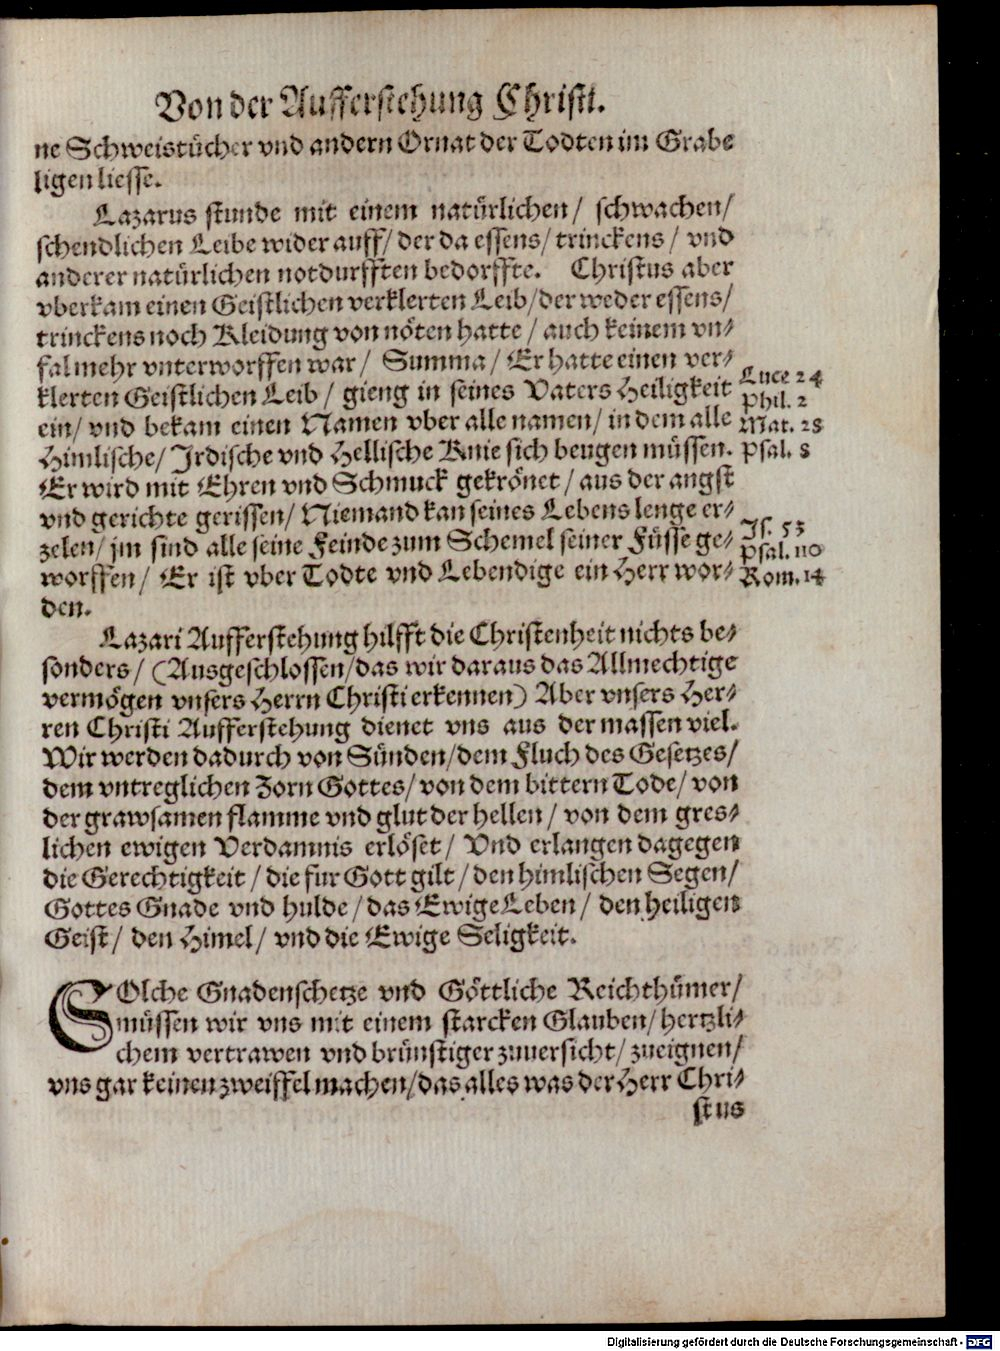 Von der Aufferstehung Christi.
ne Schweistücher vnd andern Ornat der Todten im Grabe
ligen liesse.
Lazarus stunde mit einem natürlichen/ schwachen/
schendlichen Leibe wider auff/ der da essens/ trinckens/ vnd
anderer natürlichen notdurfften bedorffte. Christus aber
vberkam einen Geistlichen verklerten Leib/ der weder essens/
trinckens noch Kleidung von nöten hatte/ auch keinem vn-
fal mehr vnterworffen war/ Summa/ Er hatte einen ver-
klerten Geistlichen Leib/ gieng in seines Vaters Heiligkeit
ein/ vnd bekam einen Namen vber alle namen/ in dem alle
Himlische/ Irdische vnd Hellische Knie sich beugen müssen.
Er wird mit Ehren vnd Schmuck gekrönet/ aus der angst
vnd gerichte gerissen/ Niemand kan seines Lebens lenge er-
zelen/ jm sind alle seine Feinde zum Schemel seiner Füsse ge-
worffen/ Er ist vber Todte vnd Lebendige ein Herr wor-
den.
Luce 24
Phil. 2
Mat. 28
Psal. 8
Js. 53
Psal. 110
Rom. 14
Lazari Aufferstehung hilfft die Christenheit nichts be-
sonders/ (Ausgeschlossen/ das wir daraus das Allmechtige
vermögen vnsers Herrn Christi erkennen) Aber vnsers Her-
ren Christi Aufferstehung dienet vns aus der massen viel.
Wir werden dadurch von Sünden/ dem Fluch des Gesetzes/
dem vntreglichen Zorn Gottes/ von dem bittern Tode/ von
der grawsamen flamme vnd glut der hellen/ von dem gres-
lichen ewigen Verdamnis erlöset/ Vnd erlangen dagegen
die Gerechtigkeit/ die fur Gott gilt/ den himlischen Segen/
Gottes Gnade vnd hulde/ das Ewige Leben/ den heiligen
Geist/ den Himel/ vnd die Ewige Seligkeit.
SOlche Gnadenschetze vnd Göttliche Reichthümer/
müssen wir vns mit einem starcken Glauben/ hertzli-
chem vertrawen vnd brünstiger zuuersicht/ zueignen/
vns gar keinen zweiffel machen/ das alles was der Herr Chri-
stus
Digitalisierung gefördert durch die Deutsche Forschungsgemeinschaft - DFG